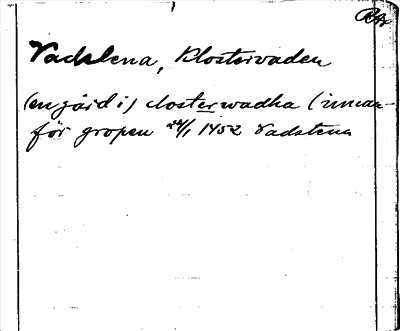 Vadstena, Klostervaden
(en gård i) closterwadha (innan-
för gropen 24/1 1452 Vadstena